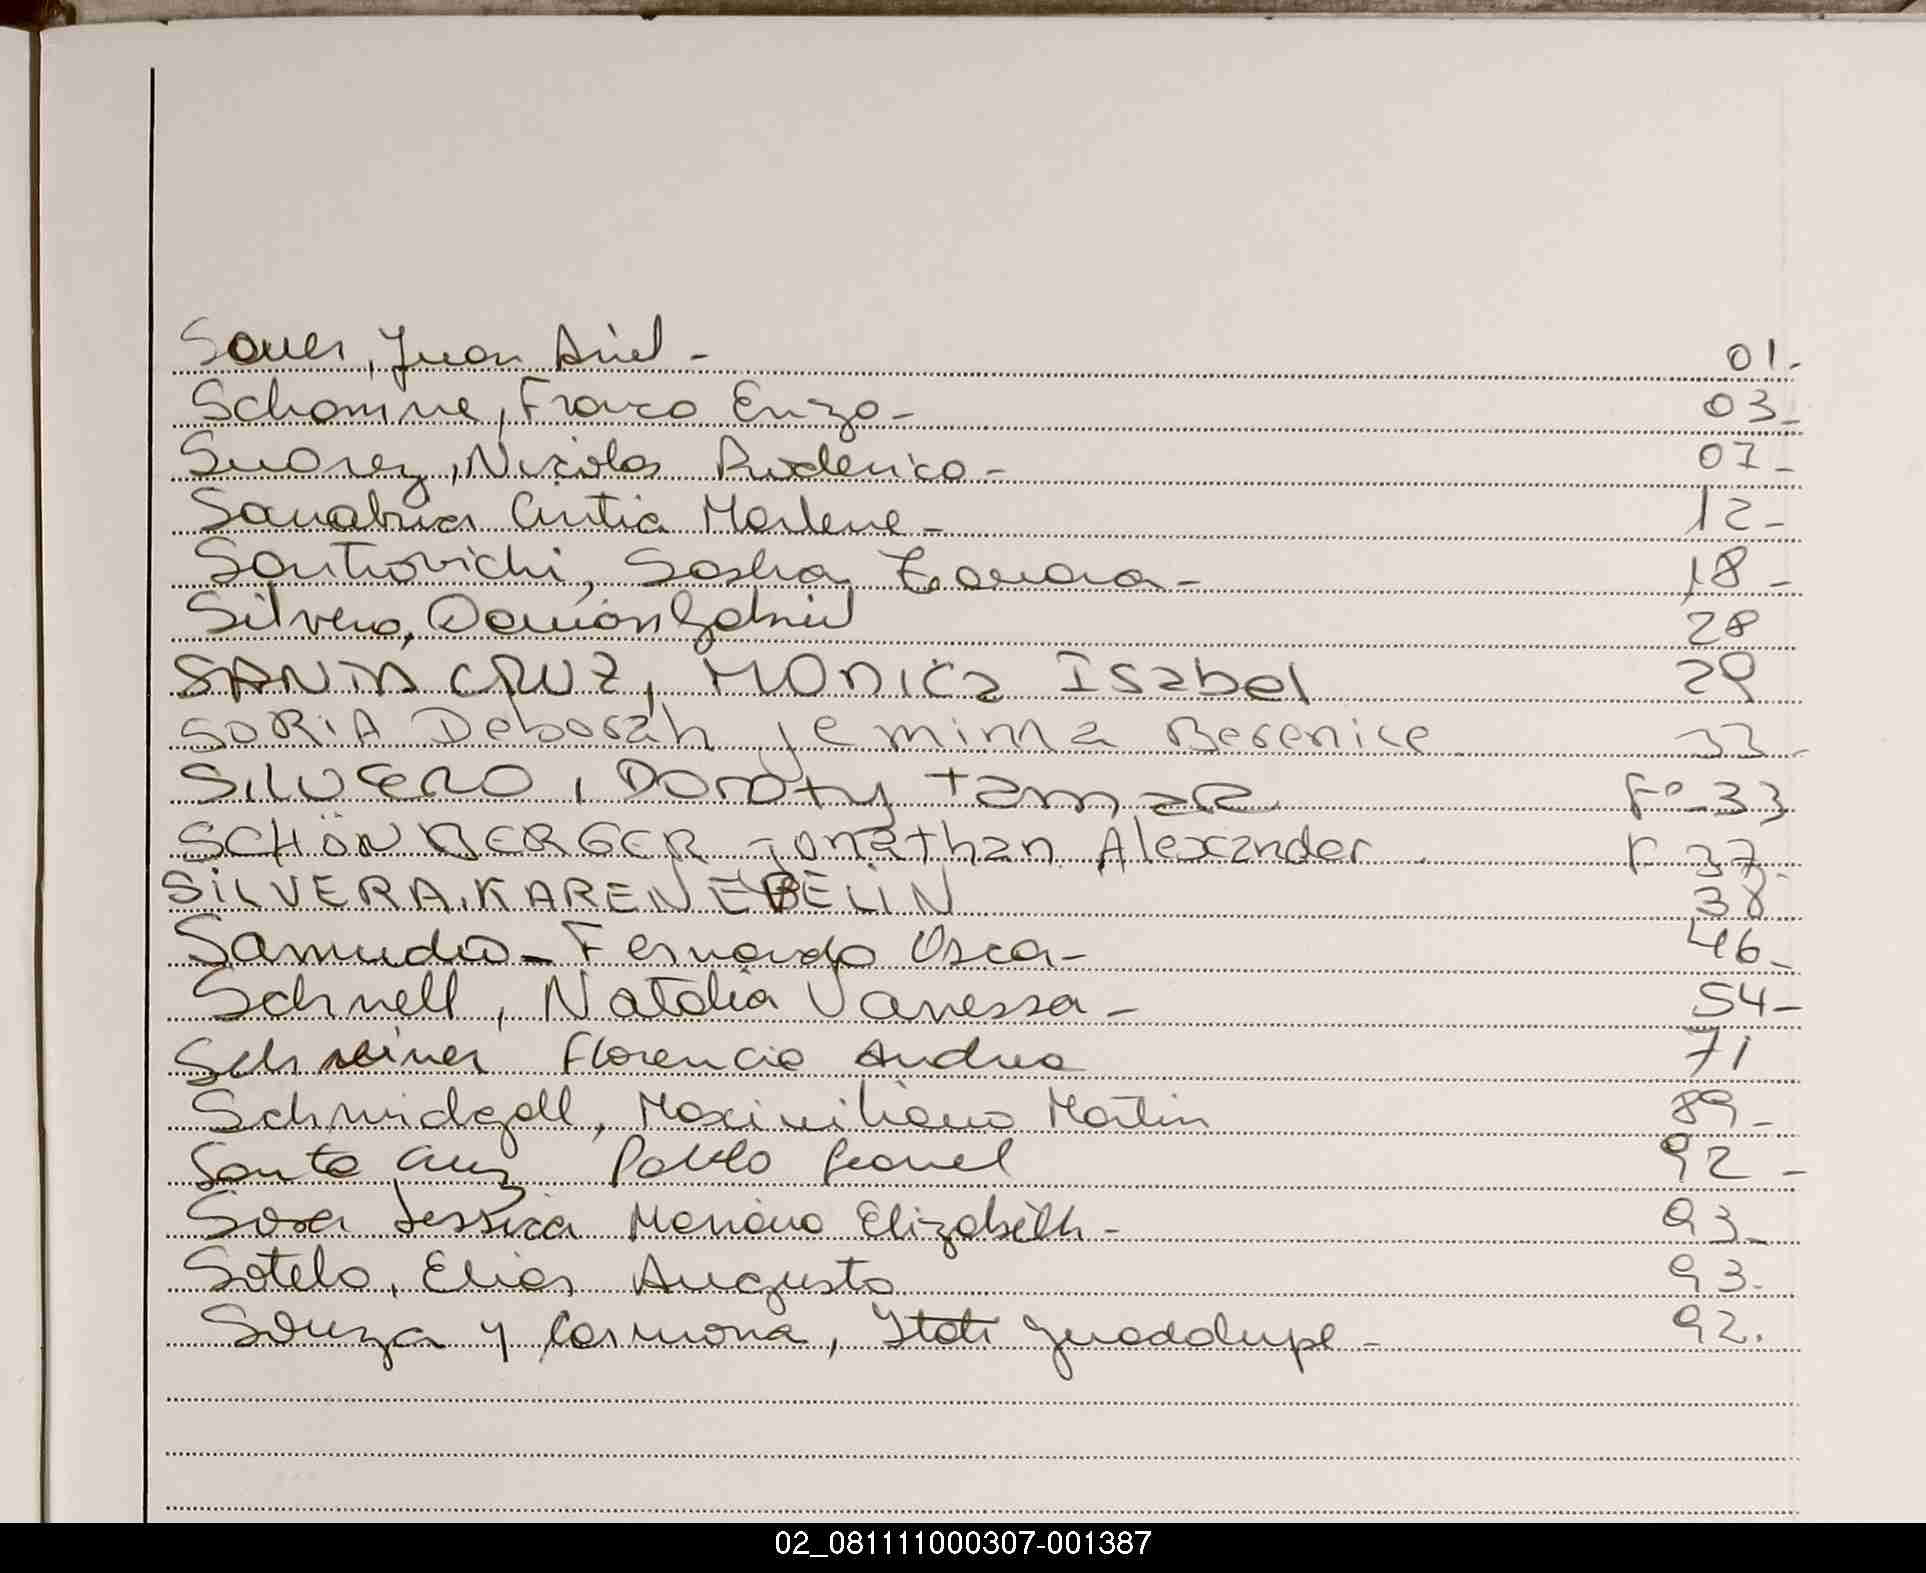 Sauer, Juan Ariel - 01.-
Schomme, Franco Enzo - 03 -
Suarez, Nicolas Ruderico - 07 -
Sanabria Cintia Marlene - 12 -
Santrovichi, Sasha - 18 -
Silvero, Damián Gabriel 28
SANTA CRUZ, MONICA ISabel 29
SORIA Deborah Jemimma Berenice 33 -
SILVERO, DOROTY TAMAR Fº 33
SCHÖNBERGER Jonathan Alexander F 37 -
SILVERA, KAREN EBELIN 38
Samudio - Fernando Osca - 46 -
Schnell, Natalia Vanessa - 54 -
Schreiner Florencia Andrea 71
Schmidgall, Maximiliano Martin 89 -
Santa Cruz Pablo Leonel 92 -
Sosa Jessica Mariana Elizabeth - 93 -
Sotelo, Elias Augusto 93.
Souza y Carmona, Itatí Guadalupe - 92.
02_081111000307-001387